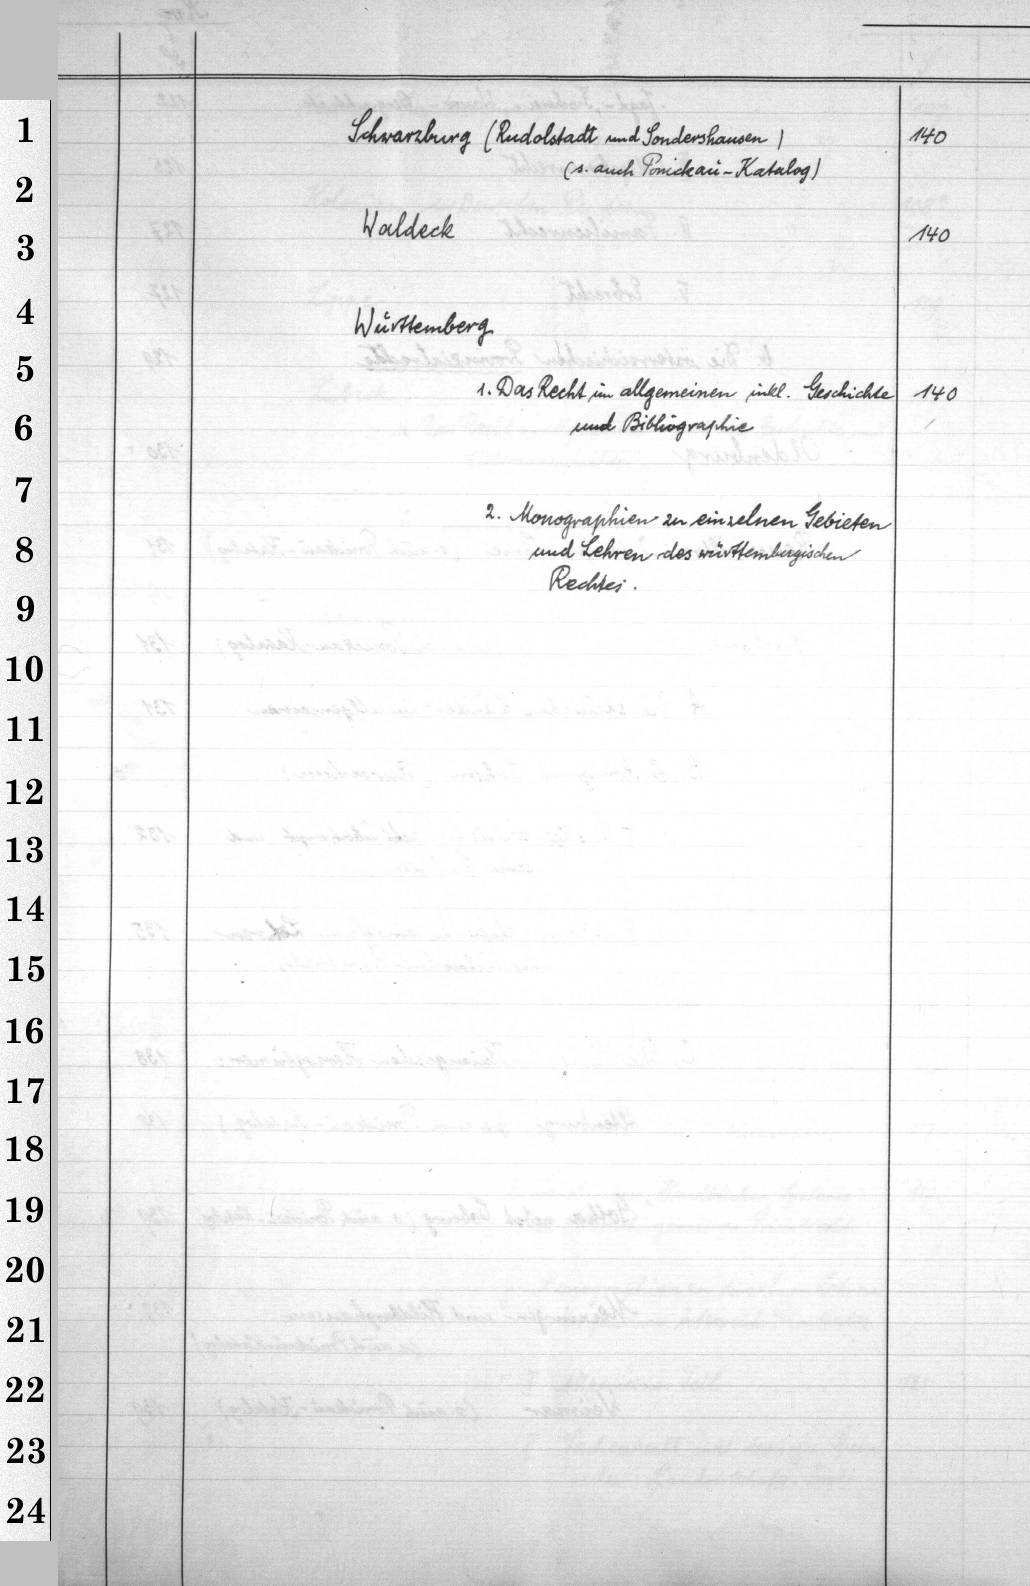 1
Schwarzburg (Rudolstadt und Sondershausen) 140
(s. auch Ponickau-Katalog)
2
Waldeck 140
3
4
Württemberg
5
1. Das Recht im allgemeinen inkl. Geschichte 140
6
und Bibliographie
7
2. Monographien zu einzelnen Gebieten
8
und Lehren des württembergischen
Rechtes.
9
10
11
12
13
14
15
16
17
18
19
20
21
22
23
24